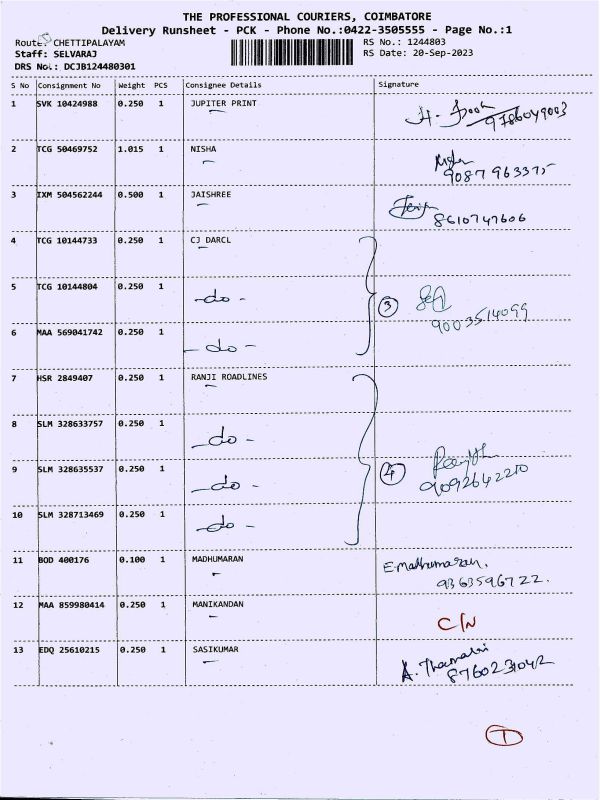 THE PROFESSIONAL COURIERS, COIMBATORE
Delivery Runsheet - PCK - Phone No.:0422-3505555 - Page No.:1
Route: CHETTIPALAYAM
Staff: SELVARAJ
DRS No.: DCJB124480301
RS No.: 1244803
RS Date: 20-Sep-2023
S No Consignment No Weight PCS Consignee Details Signature
1 SVK 10424988 0.250 1 JUPITER PRINT
9786049003
2 TCG 50469752 1.015 1 NISHA
9087796337
3 IXM 504562244 0.500 1 JAISHREE
8610747606
4 TCG 10144733 0.250 1 CJ DARCL
5 TCG 10144804 0.250 1 -do- 3
9003514099
6 MAA 569041742 0.250 1 -do-
7 HSR 2849407 0.250 1 RANJI ROADLINES
8 SLM 328633757 0.250 1 -do-
9 SLM 328635537 0.250 1 -do- 4
9092642210
10 SLM 328713469 0.250 1 -do-
11 BOD 400176 0.100 1 MADHUMARAN E. Madhumaran.
9363596722.
12 MAA 859980414 0.250 1 MANIKANDAN C/N
13 EDQ 25610215 0.250 1 SASIKUMAR
8760231042